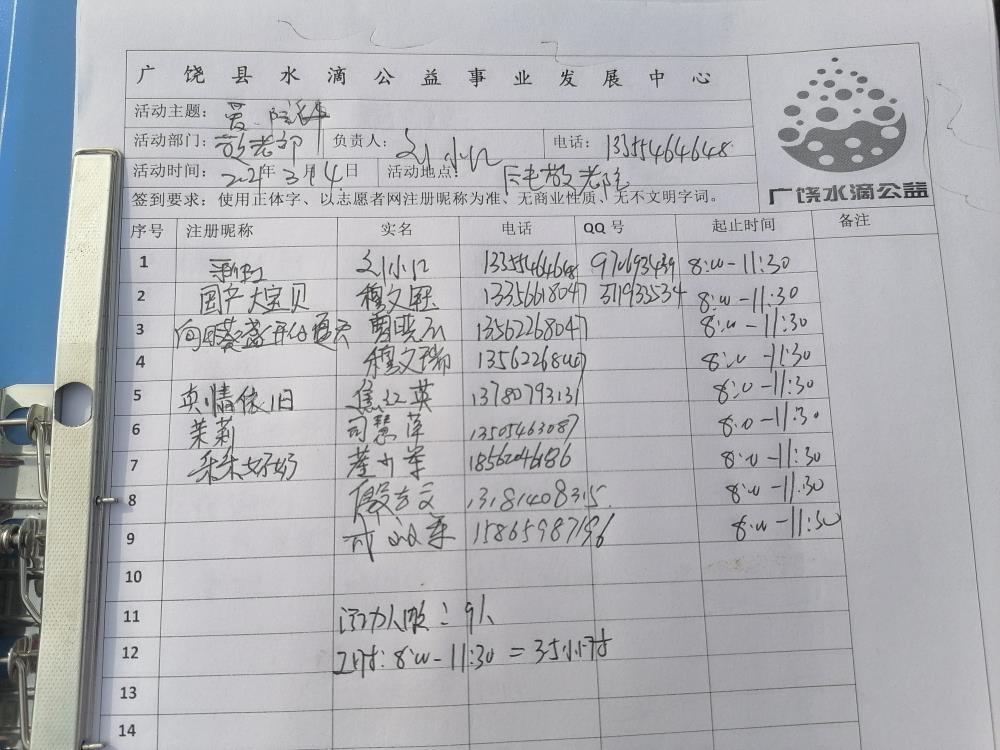 广饶县水滴公益事业发展中心
活动主题: 爱
活动部门: 敬老部 负责人: 刘小江 电话: 13355464648
活动时间: 2021年3月4日 活动地点: 敬老院
签到要求: 使用正体字、以志愿者网注册昵称为准、无商业性质、无不文明字词。
广饶水滴公益
序号 注册昵称 实名 电话 QQ号 起止时间 备注
1 刘小江 13355464648 970693439 8:00-11:30
2 国产大宝贝 穆文 13356618047 8:00-11:30
3 13562268047 8:00-11:30
4 穆文瑞 8:00-11:30
5 真情依旧 焦红英 13780793131 8:00-11:30
6 茉莉 司慧萍 13505463087 8:00-11:30
7 朵朵好奶 18562046186 8:00-11:30
8 13181408315 8:00-11:30
9 15865987196 8:00-11:30
10
11 活动人数: 9人
12 工时: 8:00-11:30=3.5小时
13
14